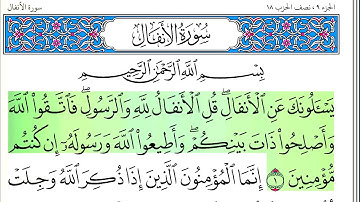 الجزء ٩، نصف الحزب ١٨
سورة الأنفال
سُورَةُ الأَنفَالِ
بِسْمِ ٱللَّهِ ٱلرَّحْمَٰنِ ٱلرَّحِيمِ
يَسْـَٔلُونَكَ عَنِ ٱلْأَنفَالِ ۖ قُلِ ٱلْأَنفَالُ لِلَّهِ وَٱلرَّسُولِ ۖ فَٱتَّقُوا۟ ٱللَّهَ
وَأَصْلِحُوا۟ ذَاتَ بَيْنِكُمْ ۖ وَأَطِيعُوا۟ ٱللَّهَ وَرَسُولَهُۥٓ إِن كُنتُم
مُّؤْمِنِينَ ١ إِنَّمَا ٱلْمُؤْمِنُونَ ٱلَّذِينَ إِذَا ذُكِرَ ٱللَّهُ وَجِلَتْ